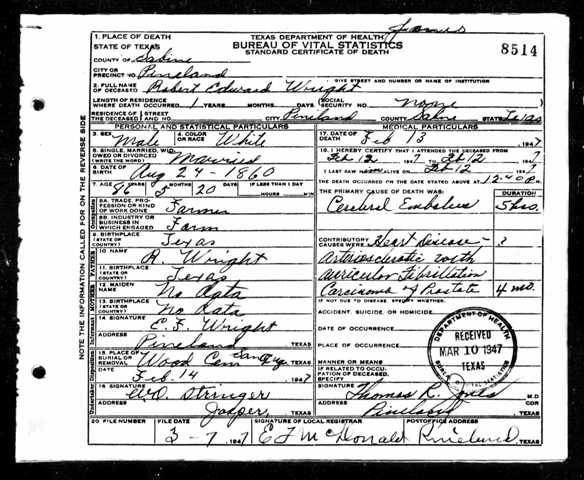 TEXAS DEPARTMENT OF HEALTH
BUREAU OF VITAL STATISTICS
STANDARD CERTIFICATE OF DEATH
8514
1. PLACE OF DEATH
STATE OF TEXAS
COUNTY OF Sabine
CITY OR PRECINCT NO. Pineland
GIVE STREET AND NUMBER OR NAME OF INSTITUTION
2. FULL NAME OF DECEASED Robert Edward Wright
LENGTH OF RESIDENCE WHERE DEATH OCCURRED 1 YEARS MONTHS DAYS (SOCIAL SECURITY NO. None
RESIDENCE OF THE DECEASED STREET NO. CITY Pineland COUNTY Sabine STATE Texas
PERSONAL AND STATISTICAL PARTICULARS
3. SEX Male
4. COLOR OR RACE White
5. SINGLE, MARRIED, WIDOWED OR DIVORCED (WRITE THE WORD) Married
6. DATE OF BIRTH Aug 24 - 1860
7. AGE 86 5 20 IF LESS THAN 1 DAY
8A. TRADE, PROFESSION OR KIND OF WORK DONE Farmer
8B. INDUSTRY OR BUSINESS IN WHICH ENGAGED Farm
9. BIRTHPLACE (STATE OR COUNTRY) Texas
10. NAME R. Wright
11. BIRTHPLACE (STATE OR COUNTRY) Texas
12. MAIDEN NAME No Data
13. BIRTHPLACE (STATE OR COUNTRY) No Data
14. SIGNATURE E. F. Wright
ADDRESS Pineland, TEXAS
15. PLACE OF BURIAL OR REMOVAL Wood Cem TEXAS
DATE Feb. 14 1947
16. SIGNATURE Stringer
ADDRESS Jasper, TEXAS
MEDICAL PARTICULARS
17. DATE OF DEATH Feb 13 1947
18. I HEREBY CERTIFY THAT I ATTENDED THE DECEASED FROM
Feb 12 1947 TO Feb 12 1947
I LAST SAW him ALIVE ON Feb 12 1947
THE DEATH OCCURRED ON THE DATE STATED ABOVE AT 12:40 P.M.
THE PRIMARY CAUSE OF DEATH WAS: DURATION
Cerebral Embolus 5 hrs.
CONTRIBUTORY CAUSES WERE: Heart Disease - ?
Arteriosclerotic with
Auricular Fibrillation
Carcinoma of Prostate 4 mo.
IF NOT DUE TO DISEASE, SPECIFY WHETHER:
ACCIDENT, SUICIDE, OR HOMICIDE
DATE OF OCCURRENCE
PLACE OF OCCURRENCE
MANNER OR MEANS
IF RELATED TO OCCUPATION OF DECEASED, SPECIFY
SIGNATURE Thomas R. Jones M.D.
ADDRESS Pineland TEXAS
DEPARTMENT OF HEALTH
RECEIVED
MAR 10 1947
TEXAS
BUREAU OF VITAL STATISTICS
20. FILE NUMBER
FILE DATE 3-7 1947
SIGNATURE OF LOCAL REGISTRAR E F McDonald
POSTOFFICE ADDRESS Pineland, TEXAS
NOTE THE INFORMATION CALLED FOR ON THE REVERSE SIDE